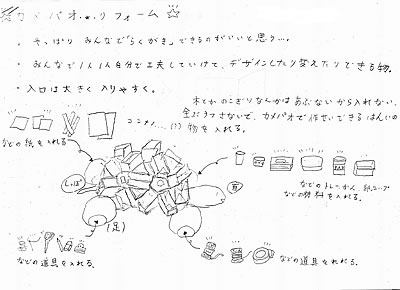 カメパオ・★・リフォーム☆
・ やっぱり みんなで「らくがき」できるのがいいと思う…。
・ みんなで1人1人自分で工夫していけて、デザインしたり変えたりできる物。
・ 入口は大きく 入りやすく。
木とかのこぎりなんかはあぶないから入れない。
全ぶうつさないで、カメパオで作せいできるはんいの
物を入れる。
コンナノ…(?)
などの紙を入れる
しっぽ
頭
(足)
などのトレーとかん、紙コップ
などの材料を入れる。
などの道具を入れる。
などの道具を入れる。